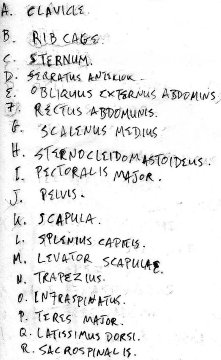 A. CLAVICLE
B. RIB CAGE.
C. STERNUM.
D. SERRATUS ANTERIOR.
E. OBLIQUUS EXTERNUS ABDOMINS
F. RECTUS ABDOMUNIS.
G. SCALENUS MEDIUS
H. STERNOCLEIDOMASTOIDEUS.
I. PECTORALIS MAJOR.
J. PELVIS.
K. SCAPULA.
L. SPLENIUS CAPITIS.
M. LEVATOR SCAPULAE
N. TRAPEZIUS.
O. INFRASPINATUS.
P. TERES MAJOR.
Q. LATISSIMUS DORSI.
R. SACROSPINALIS.